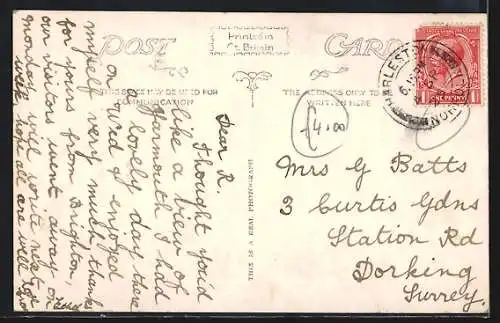 POST CARD
Printed in
Gt. Britain
THIS SPACE MAY BE USED FOR
COMMUNICATION
THE ADDRESS ONLY TO BE
WRITTEN HERE
HARLESTON
NOR
ONE PENNY
1
£4.00
THIS IS A REAL PHOTOGRAPH
Dear R.
Thought you'd
like a view of
Yarmouth I had
a lovely day there
on Wed & enjoyed
myself very much, thanks
for yours from Brighton,
our visitors went away on
Monday will write next
week, hope all are well
Mrs G Batts
3 Curtis Gdns
Station Rd
Dorking
Surrey.